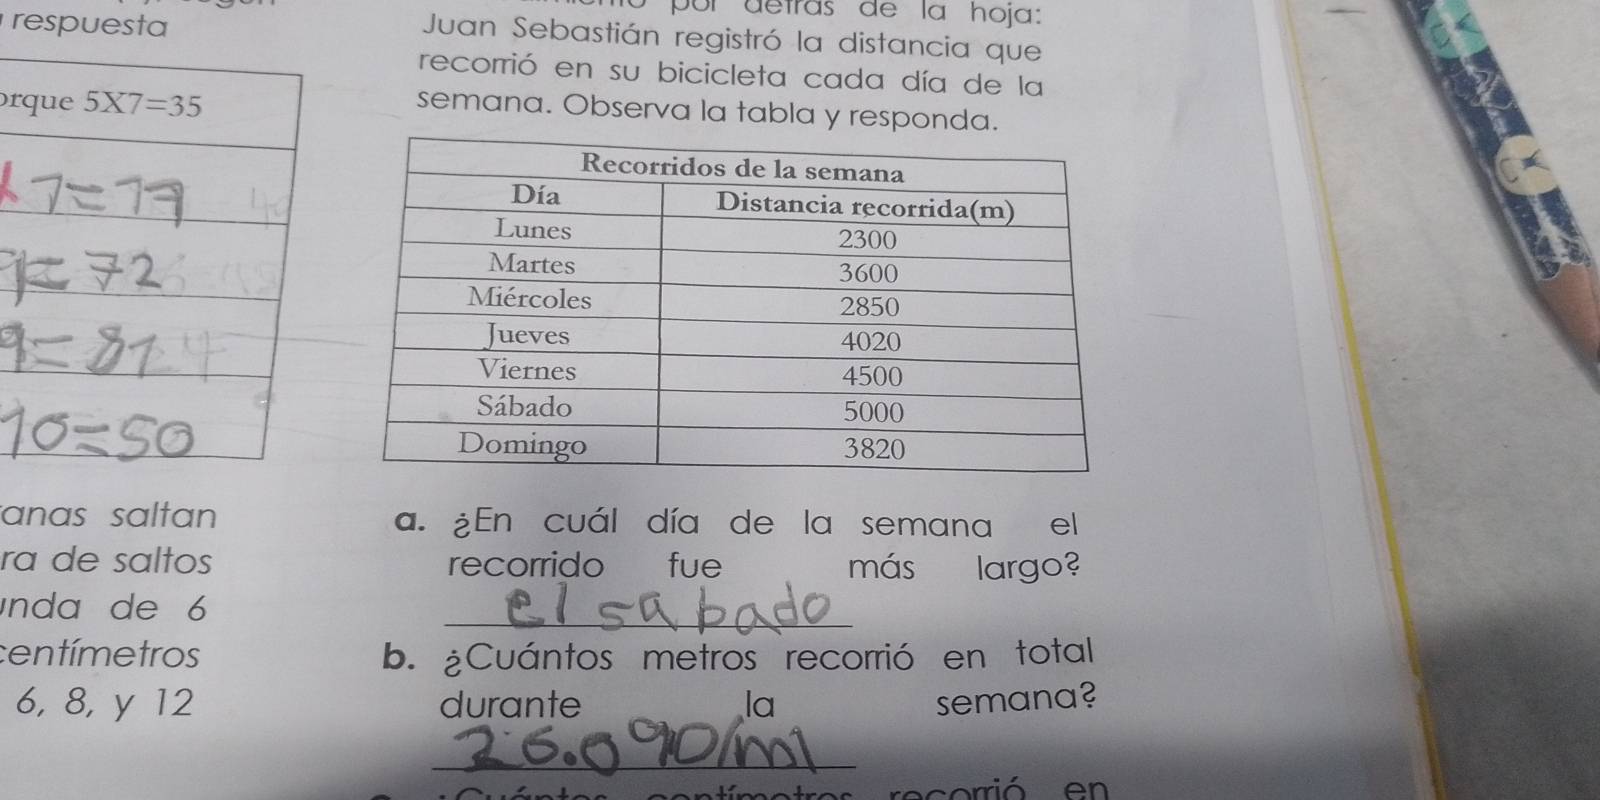 respuesta
orque 5X7=35
7=77
9=72
9=81
10=50
anas saltan
ra de saltos
unda de 6
centímetros
6, 8, y 12
por detrás de la hoja:
Juan Sebastián registró la distancia que
recorrió en su bicicleta cada día de la
semana. Observa la tabla y responda.
Recorridos de la semana
Día Distancia recorrida(m)
Lunes 2300
Martes 3600
Miércoles 2850
Jueves 4020
Viernes 4500
Sábado 5000
Domingo 3820
a. ¿En cuál día de la semana el
recorrido fue más largo?
el sabado
b. ¿Cuántos metros recorrió en total
durante la semana?
26.090/m
recorrió en